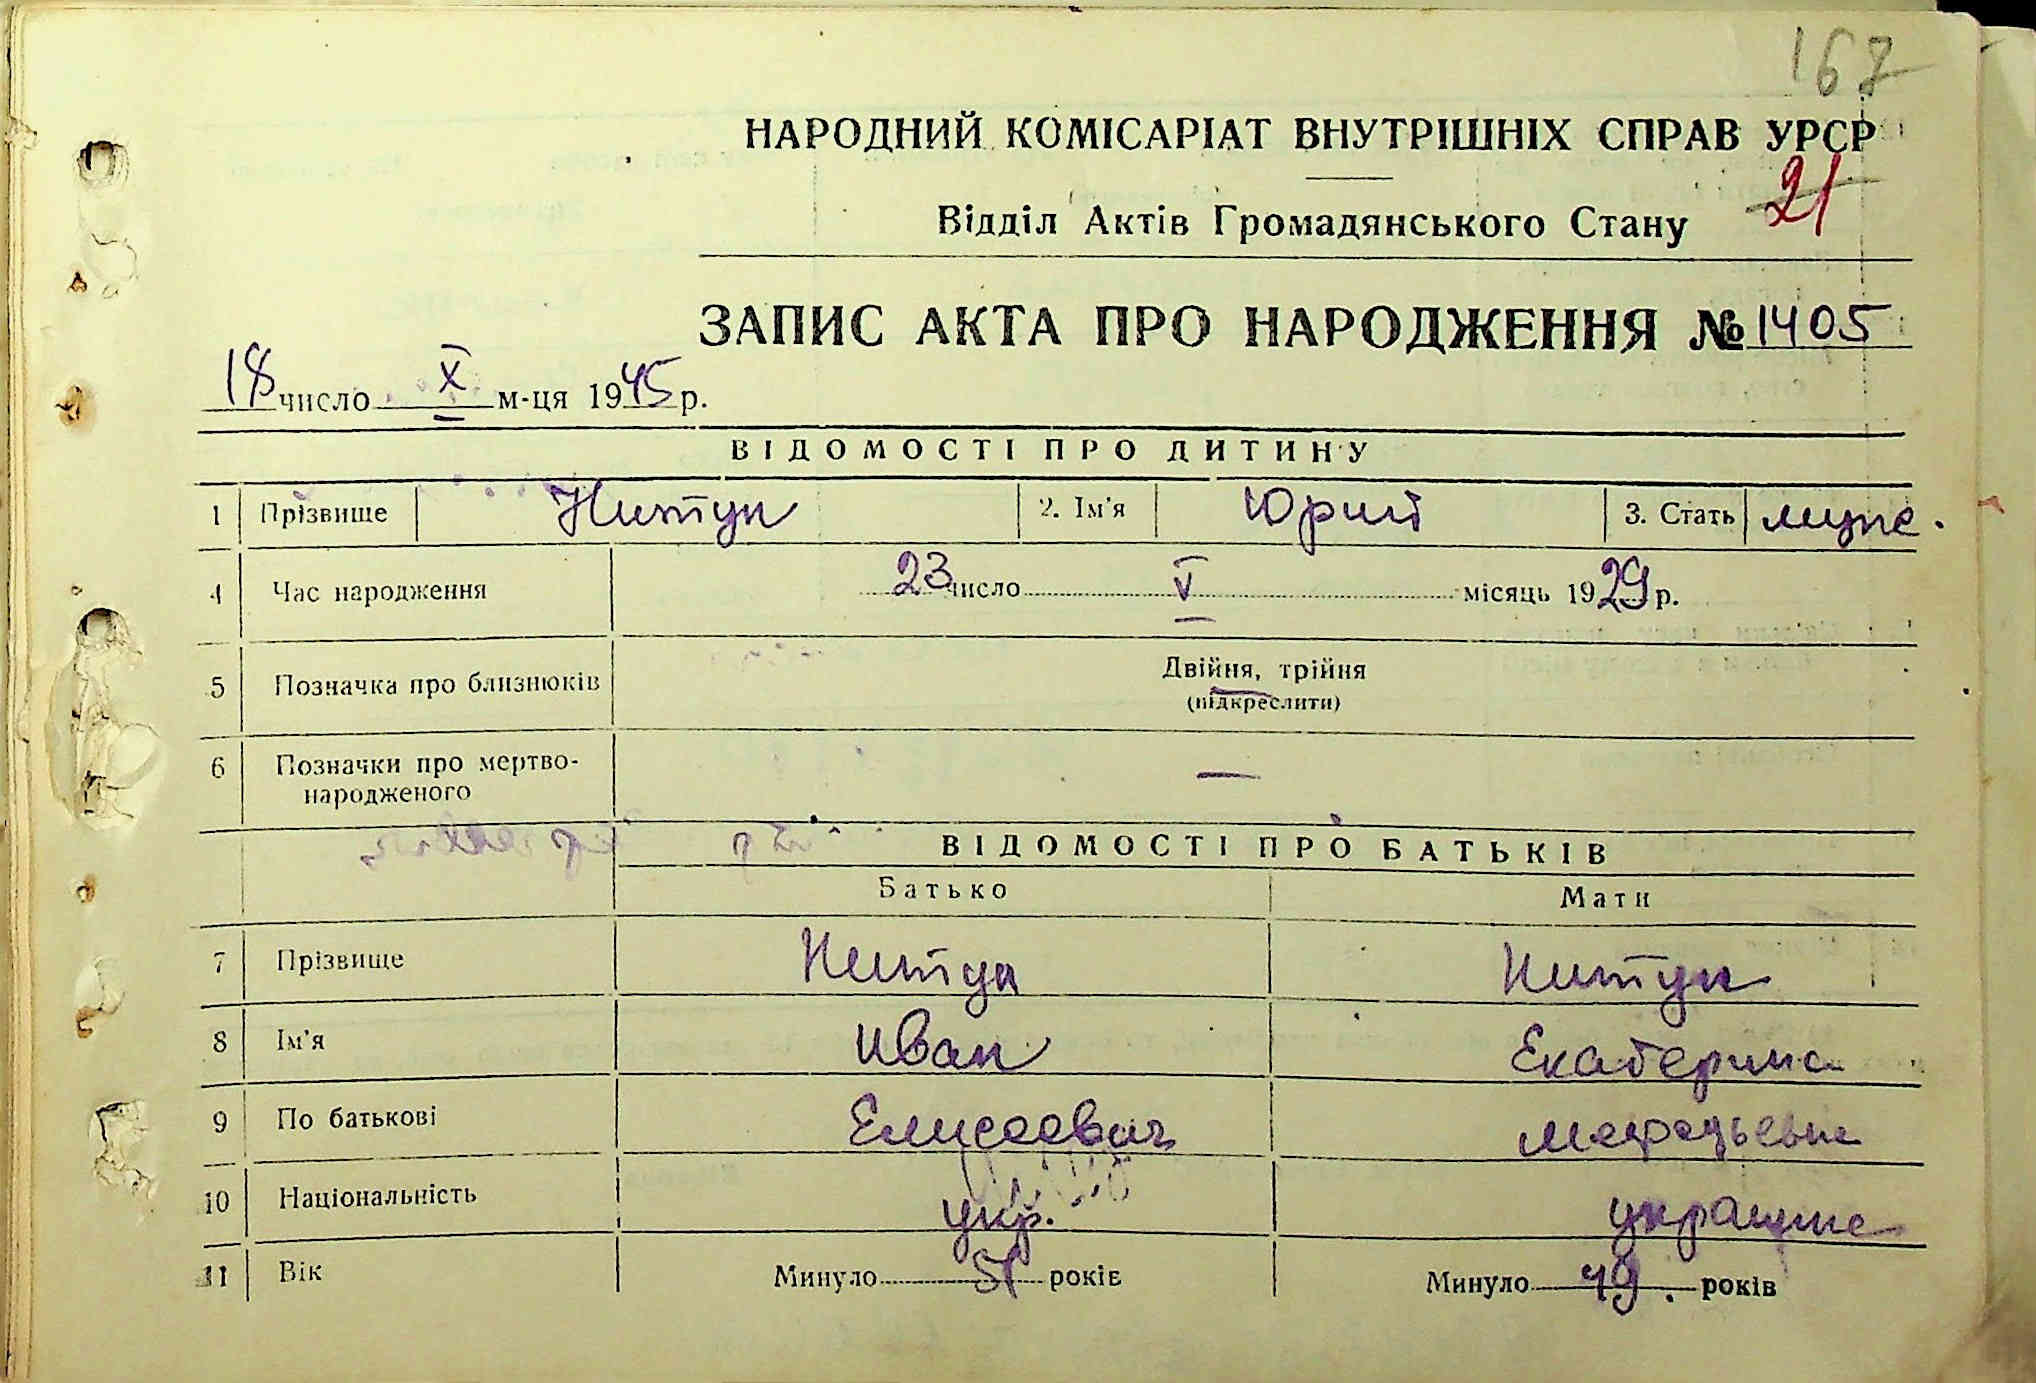 167
НАРОДНИЙ КОМІСАРІАТ ВНУТРІШНІХ СПРАВ УРСР
21
Відділ Актів Громадянського Стану
ЗАПИС АКТА ПРО НАРОДЖЕННЯ № 1405
18 число X м-ця 1945 р.
ВІДОМОСТІ ПРО ДИТИНУ
1 Прізвище Нитун 2. Ім'я Юрий 3. Стать муж.
4 Час народження 23 число V місяць 1929 р.
5 Позначка про близнюків Двійня, трійня
(підкреслити)
6 Позначки про мертво-
народженого —
ВІДОМОСТІ ПРО БАТЬКІВ
Батько Мати
7 Прізвище Нитун Нитун
8 Ім'я Иван Екатерина
9 По батькові Елисеевич
10 Національність укр. украинка
11 Вік Минуло 51 років Минуло 49. років